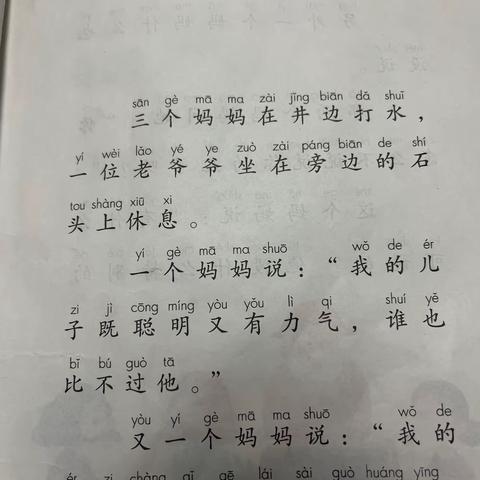 sān gè mā ma zài jǐng biān dǎ shuǐ
三个妈妈在井边打水，
yí wèi lǎo yé ye zuò zài páng biān de shí
一位老爷爷坐在旁边的石
tou shàng xiū xi
头上休息。
yí gè mā ma shuō wǒ de ér
一个妈妈说：“我的儿
zi jì cōng míng yòu yǒu lì qi shuí yě
子既聪明又有力气，谁也
bǐ bú guò tā
比不过他。”
yòu yí gè mā ma shuō wǒ de
又一个妈妈说：“我的
ér zi chàng qǐ gē lái sài guò huáng yīng